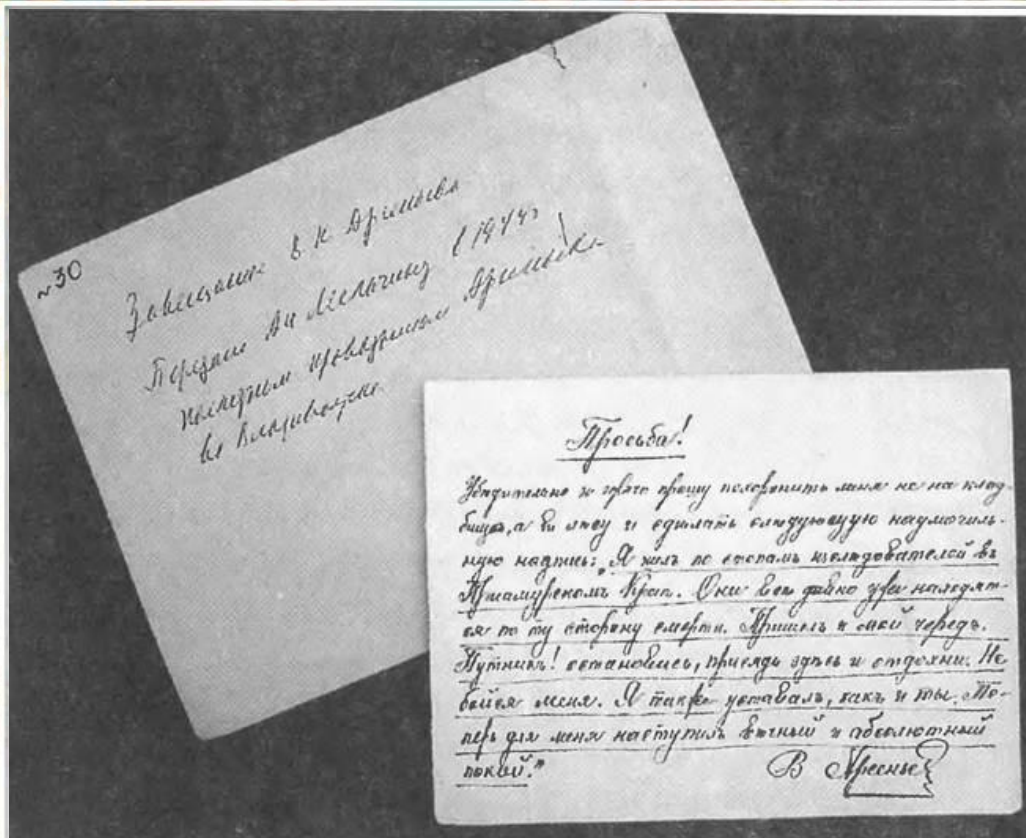 №30
Завещание В К Арсеньева
Передано в 1944г
проводником Арсеньева
во Владивостоке
Просьба!
Убедительно и горячо прошу похоронить меня не на клад-
бищѣ, а въ лѣсу и сдѣлать слѣдующую надмогиль-
ную надпись: „Я шелъ по стопамъ изслѣдователей въ
Приамурскомъ Краѣ. Они всѣ давно уже находят-
ся по ту сторону смерти. Пришелъ и мой чередъ.
Путникъ! остановись, присядь здѣсь и отдохни. Не
бойся меня. Я также уставалъ, какъ и ты. Те-
перь для меня наступилъ вѣчный и абсолютный
покой."
В Арсеньев